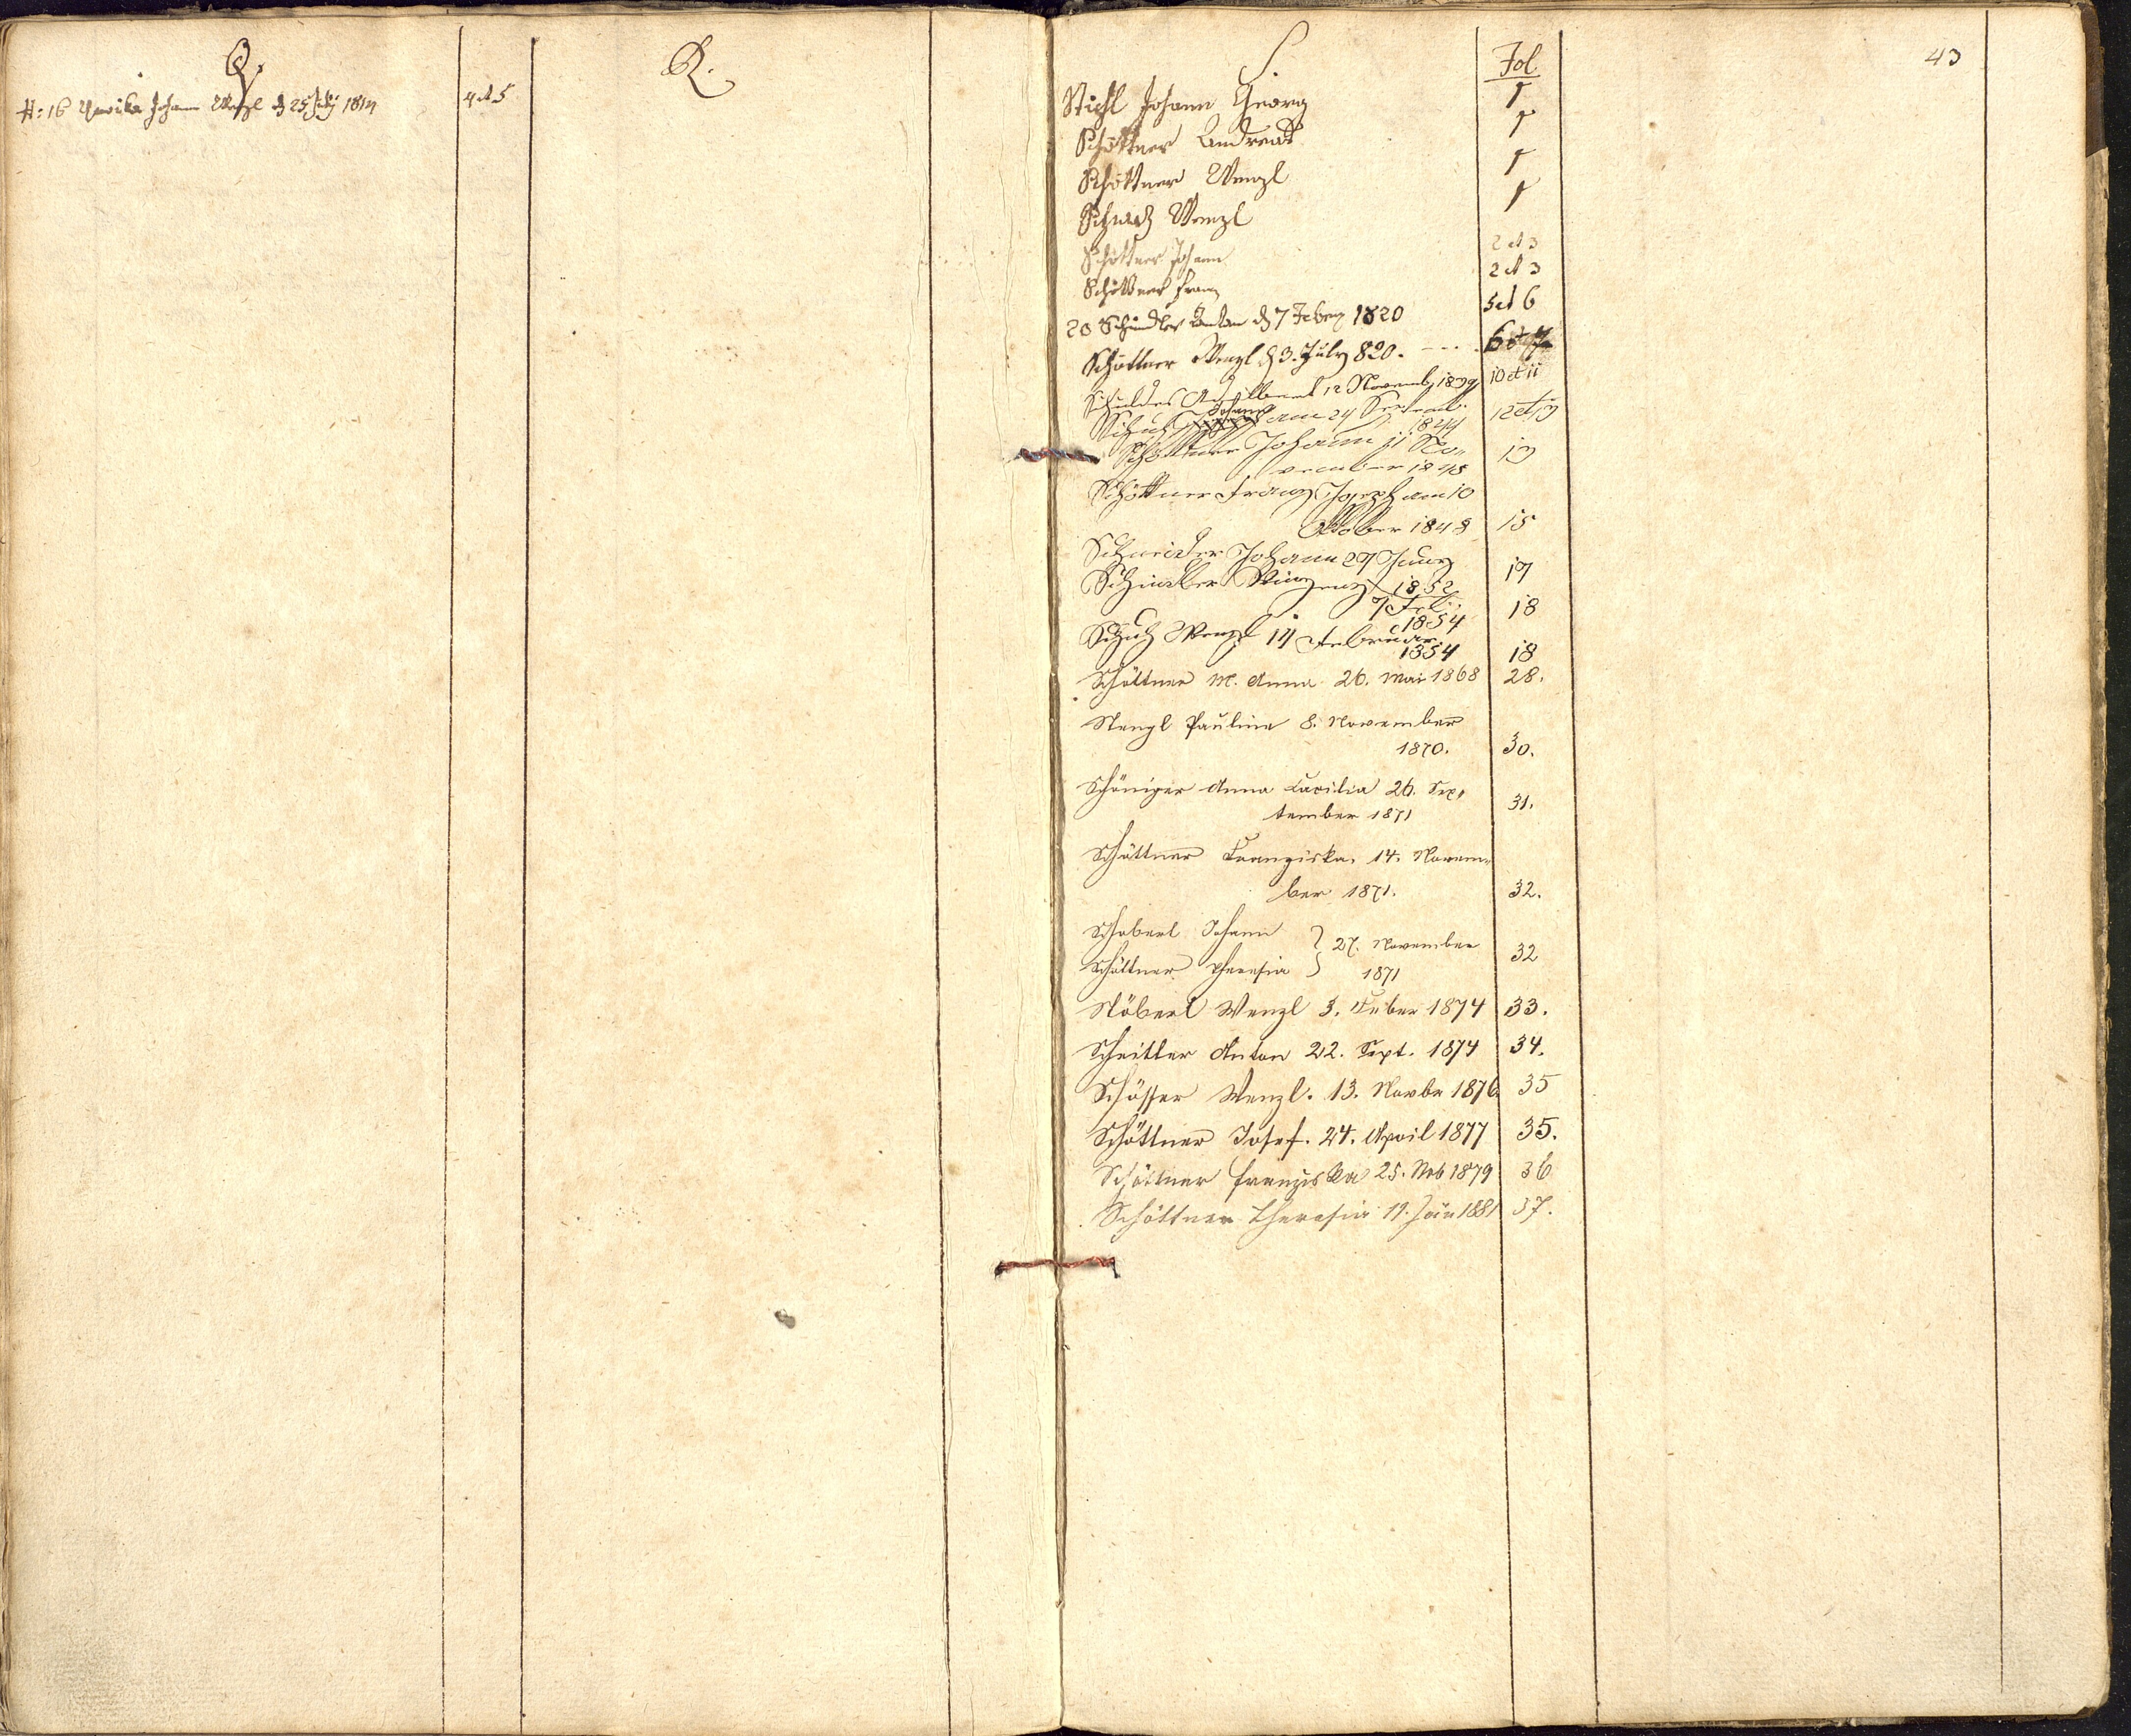 Q.
N: 16 Johann Wenzl d 25 July 1814 4 et 5
R.
S.
Fol
43
Stichl Johann Georg 1
Schöttner Andreas 1
Schöttner Wenzl 1
Wenzl 1
Schöttner Johann 2 et 3
Schöttner Franz 2 et 3
20 Schindler Anton d 7 Feberz 1820 5 et 6
Schöttner Wenzl d 3. July 820. 6 et 7
Adalbert 12 Novemb 1839 10 et 11
Schuh Johann am 24 Septemb. 12 et 13
1844
Schöttner Johann 11 No„ 13
vember 1845
Schöttner Franz Joseph am 10
Oktober 1848 15
Schneider Johann 27 17
Schindler Vinzenz 1852
7 Feb. 18
1854
Schuh Wenzl 14 Februar
1854 18
Schöttner M. Anna 26. Mai 1868 28.
Stengl Paulina 8. November
1870. 30.
Schöniger Anna Cäcilia 26. Sep„ 31.
tember 1871
Schöttner Franziska. 14. Novem„
ber 1871. 32.
Schoberl Johann } 27. November 32
Schöttner Theresia } 1871
Stöberl Wenzl 3. Feber 1874 33.
Scheitler Anton 22. Sept. 1874 34.
Schösser Wenzl. 13. Novbr 1876 35
Schöttner Josef. 24. April 1877 35.
Schöttner Franziska 25. Nob 1879 36
Schöttner Theresia 19. Jän 1881 37.